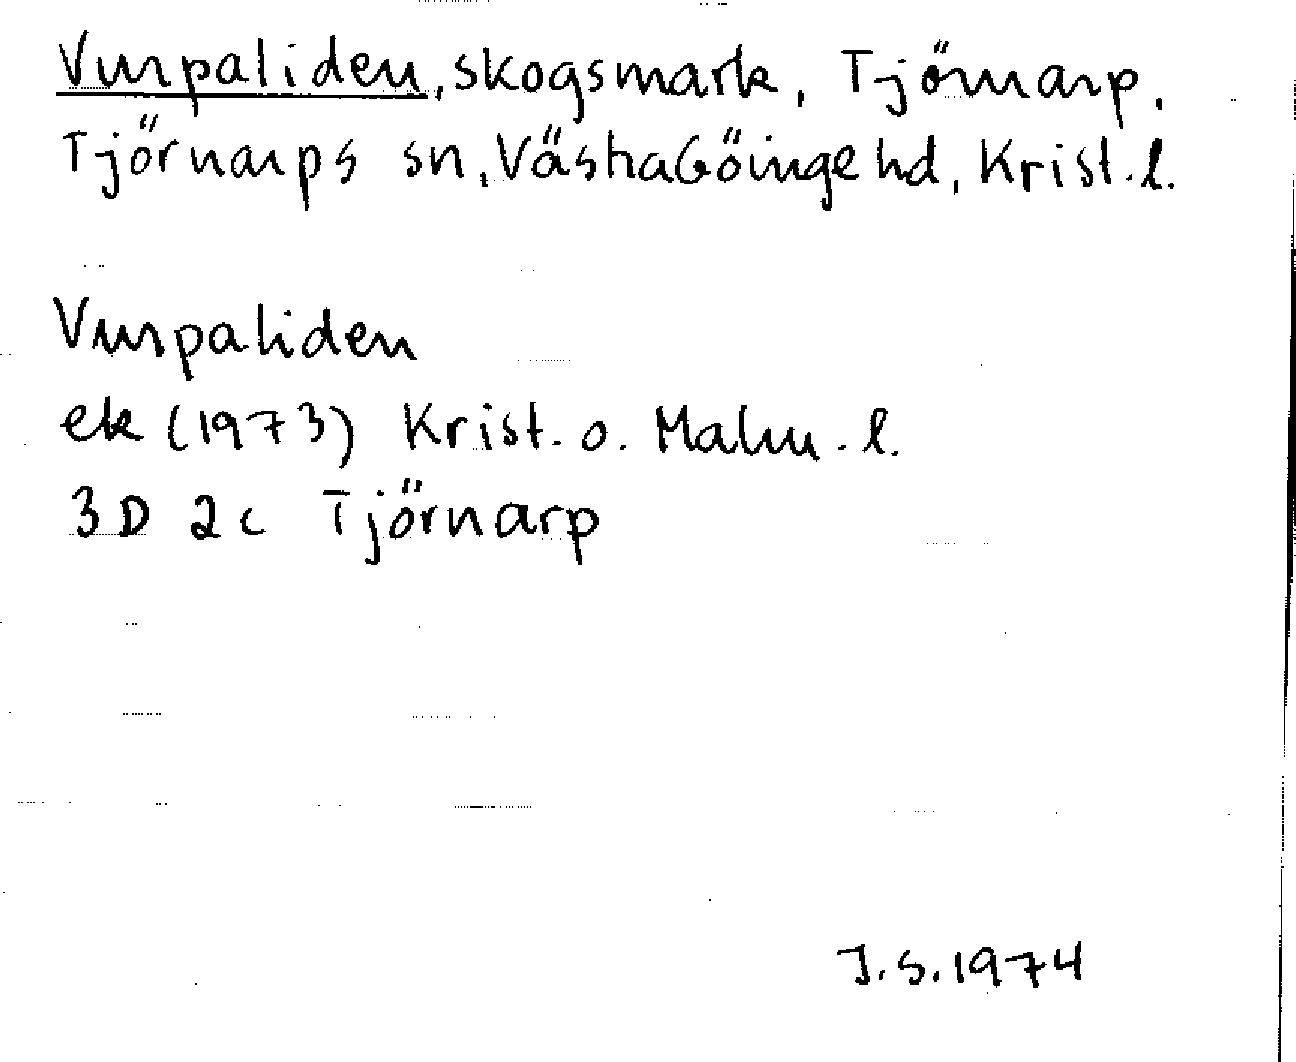 Vurpaliden, skogsmark, Tjörnarp.
Tjörnarps sn, Västra Göinge hd, Krist. l.
Vurpaliden
ek (1973) Krist. o. Malm. l.
3D 2c Tjörnarp
J.S. 1974